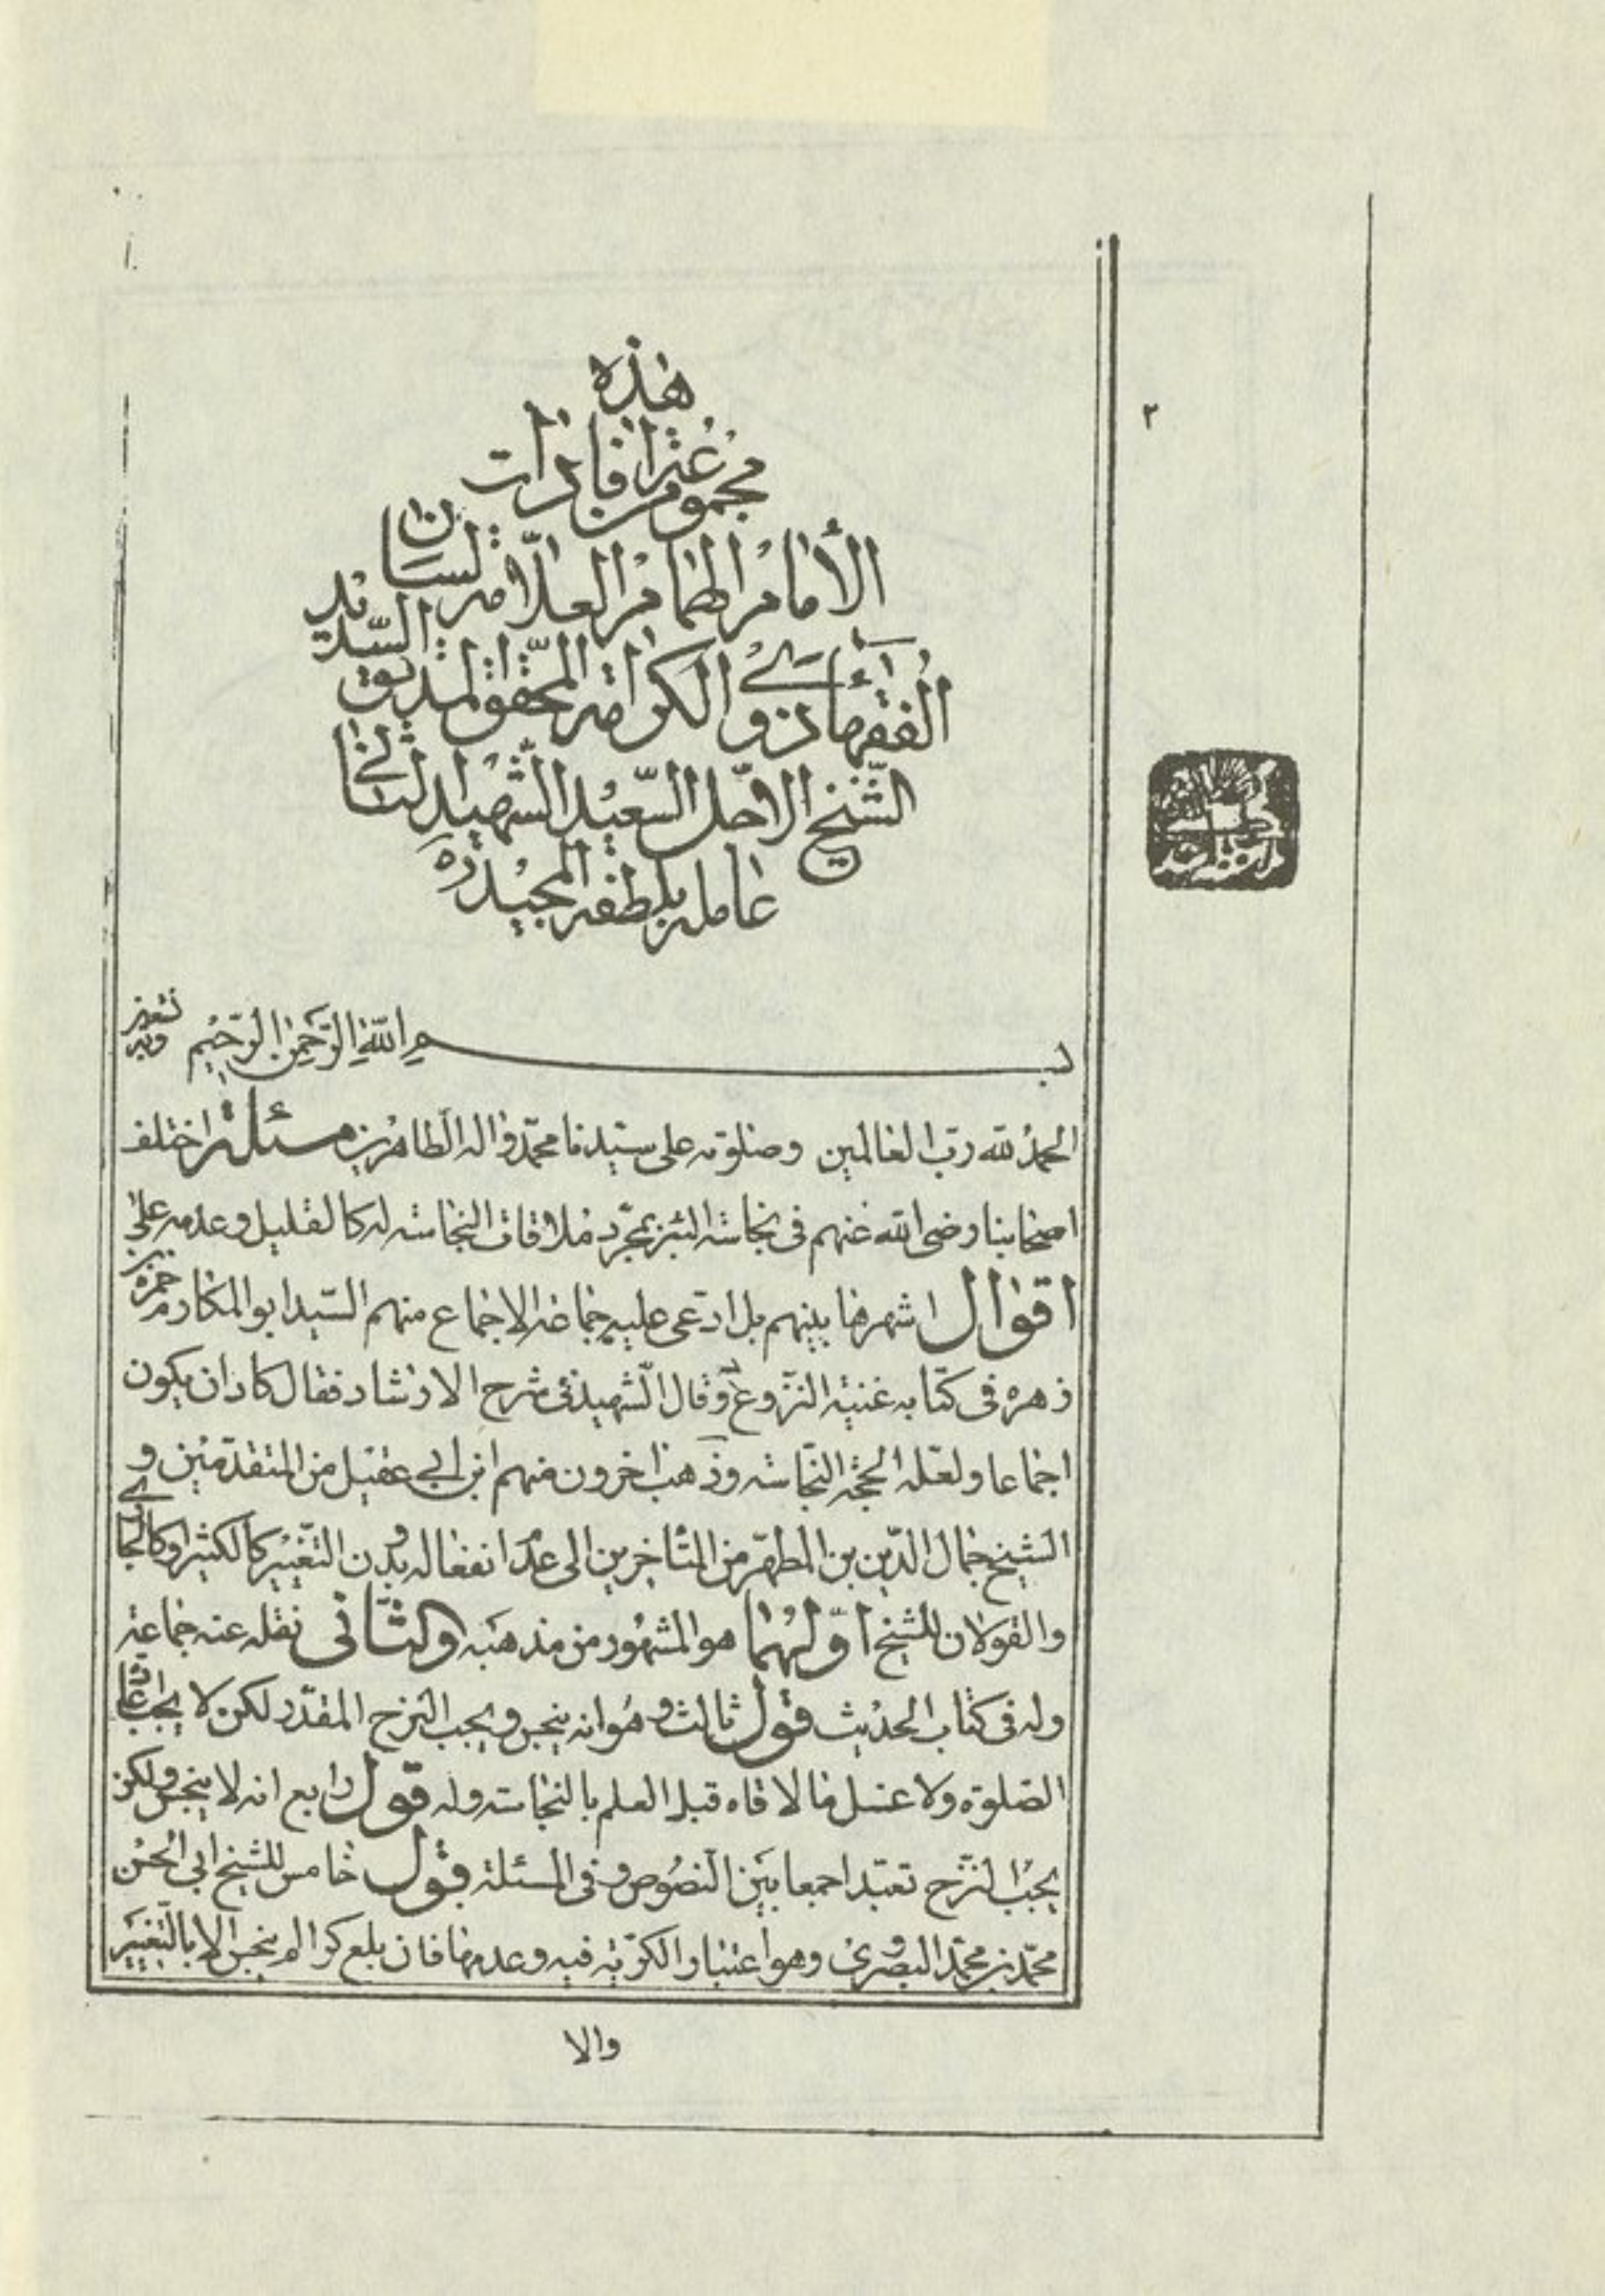 هذه
مجموعة من افادات
الأمام الهمام العلامة لسان
الفقهاء ذو الكرامة المحقق المدقق السديد
الشيخ الاجل السعيد الشهيد الثاني
عامله بلطفه المجيد ره
٢
بسم الله الرحمن الرحيم وبه نستعين
الحمد لله رب العالمين وصلوته على سيدنا محمد واله الطاهرين مسئلة اختلف
اصحابنا رضى الله عنهم فى نجاسة البئر بمجرد ملاقات النجاسة له كالقليل وعدمه على
اقوال اشهرها بينهم بل ادعى عليه جماعة الاجماع منهم السيد ابو المكارم حمزة بن
زهره فى كتابه غنية النزوع وقال الشهيد فى شرح الارشاد فقال كاد ان يكون
اجماعا ولعله الحجة النجاسة وذهب اخرون منهم ابن ابي عقيل من المتقدمين و
الشيخ جمال الدين بن المطهر من المتأخرين الى عدم انفعاله بدون التغيير كالكثير او كالجاري
والقولان للشيخ اولهما هو المشهور من مذهبه والثانى نقله عنه جماعة
وله فى كتاب الحديث قول ثالث وهو انه ينجس ويجب النزح المقدر لكن لا يجب اعادة
الصلوة ولا غسل ما لاقاه قبل العلم بالنجاسة وله قول رابع انه لا ينجس ولكن
يجب النزح تعبدا جمعا بين النصوص وفى المسئلة قول خامس للشيخ ابي الحسن
محمد بن محمد البصروى وهو اعتبار الكرية فيه وعدمها فان بلغ كرا لم ينجس الا بالتغيير
والا